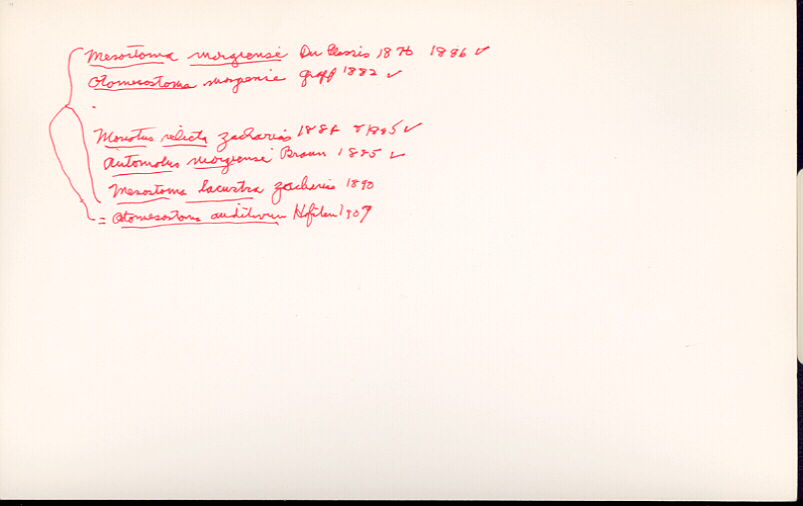 Mesostoma morgiense Du Plessis 1876 1886 ✓
Otomesostoma morgense Graff 1882 ✓
Monotus relicta Zacharias 1884 & 1885 ✓
Automolus morgiense Braun 1885 ✓
Mesostoma lacustra Zacharias 1890
= Otomesostoma auditivum Hofsten 1907